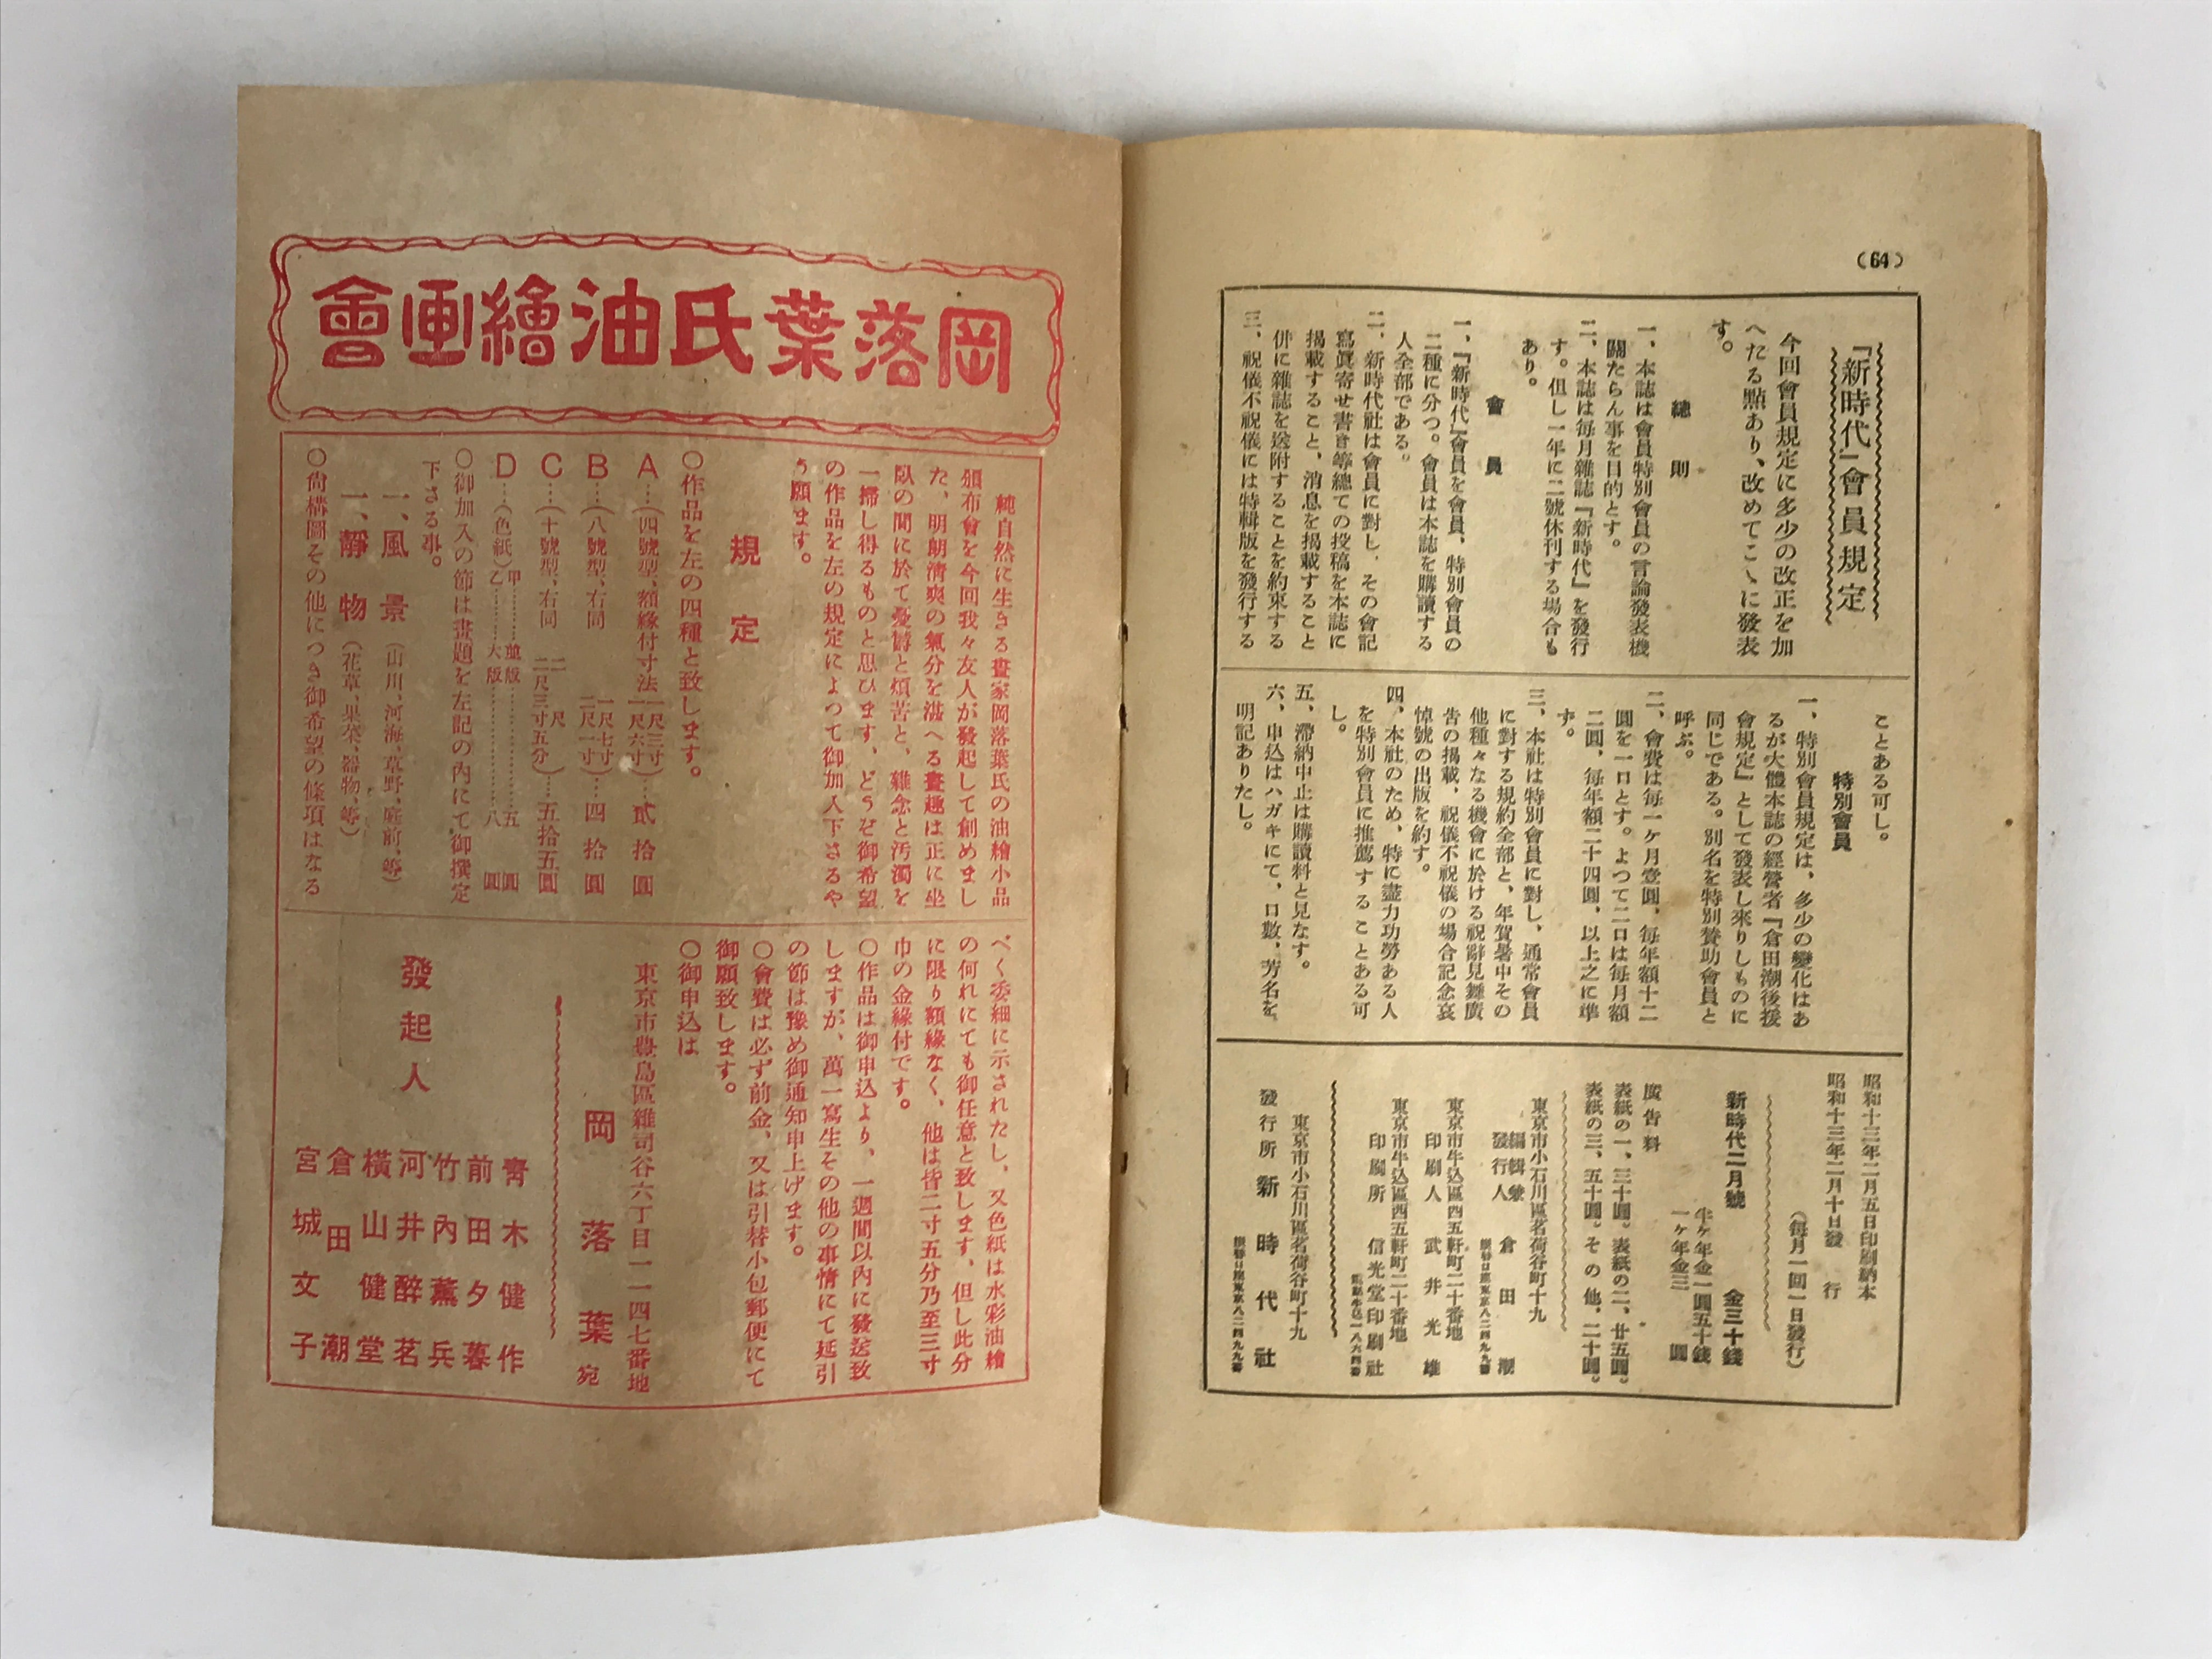 (64)
『新時代』會員規定
今回會員規定に多少の改正を加
へたる點あり、改めてこゝに發表
す。
總則
一、本誌は會員特別會員の言論發表機
關たらん事を目的とす。
二、本誌は毎月雜誌『新時代』を發行
す。但し一年に二號休刊する場合も
あり。
會員
一、『新時代』會員を會員、特別會員の
二種に分つ。會員は本誌を購讀する
人全部である。
二、新時代社は會員に對し、その會記
寫眞寄せ書き等總ての投稿を本誌に
揭載すること、消息を揭載すること
併に雜誌を送附することを約束する
三、祝儀不祝儀には特輯版を發行する
ことある可し。
特別會員
一、特別會員規定は、多少の變化はあ
るが大體本誌の經營者『倉田潮後援
會規定』として發表し來りしものに
同じである。別名を特別賛助會員と
呼ぶ。
二、會費は毎一ケ月壹圓、毎年額十二
圓を一口とす。よつて二口は毎月額
二圓、毎年額二十四圓、以上之に準
ず。
三、本社は特別會員に對し、通常會員
に對する規約全部と、年賀暑中その
他種々なる機會に於ける祝辭見舞廣
告の揭載、祝儀不祝儀の場合記念哀
悼號の出版を約す。
四、本社のため、特に盡力功勞ある人
を特別會員に推薦することある可
し。
五、滯納中止は購讀料と見なす。
六、申込はハガキにて、口數、芳名を
明記ありたし。
昭和十三年二月五日印刷納本
昭和十三年二月十日發行
(毎月一回一日發行)
新時代二月號 金三十錢
半ケ年金一圓五十錢
一ケ年金三圓
廣告料
表紙の一、三十圓。表紙の二、廿五圓。
表紙の三、五十圓。その他、二十圓。
東京市小石川區茗荷谷町十九
編輯兼發行人 倉田潮
振替口座東京八二四九九番
東京市牛込區西五軒町二十番地
印刷人 武井光雄
東京市牛込區西五軒町二十番地
印刷所 信光堂印刷社
東京市小石川區茗荷谷町十九
發行所 新時代社
振替口座東京八二四九九番
岡落葉氏油繪画會
純自然に生きる畫家岡落葉氏の油繪小品
頒布會を今回我々友人が發起して創めまし
た、明朗清爽の氣分を湛へる畫趣は正に坐
臥の間に於て憂鬱と煩苦と、雜念と汚濁を
一掃し得るものと思ひます、どうぞ御希望
の作品を左の規定によつて御加入下さるや
う願ます。
規定
○作品を左の四種と致します。
A…(四號型、額緣付寸法 一尺三寸 一尺六寸)…貳拾圓
B…(八號型、右同 一尺七寸 二尺一寸)…四拾圓
C…(十號型、右同 二尺 二尺三寸五分)…五拾五圓
D…(色紙) 甲……並版……五圓 乙……大版……八圓
○御加入の節は畫題を左記の內にて御撰定
下さる事。
一、風景(山川、河海、草野、庭前、等)
一、靜物(花草、果菜、器物、等)
○尙構圖その他につき御希望の條項はなる
べく委細に示されたし、又色紙は水彩油繪
の何れにても御任意と致します、但し此分
に限り額緣なく、他は皆二寸五分乃至三寸
巾の金緣付です。
○作品は御申込より、一週間以內に發送致
しますが、萬一寫生その他の事情にて延引
の節は豫め御通知申上げます。
○會費は必ず前金、又は引替小包郵便にて
御願致します。
○御申込は
東京市豊島區雜司谷六丁目一一四七番地
岡落葉宛
發起人
靑木健作
前田夕暮
竹內薰兵
河井醉茗
橫山健堂
倉田潮
宮城文子